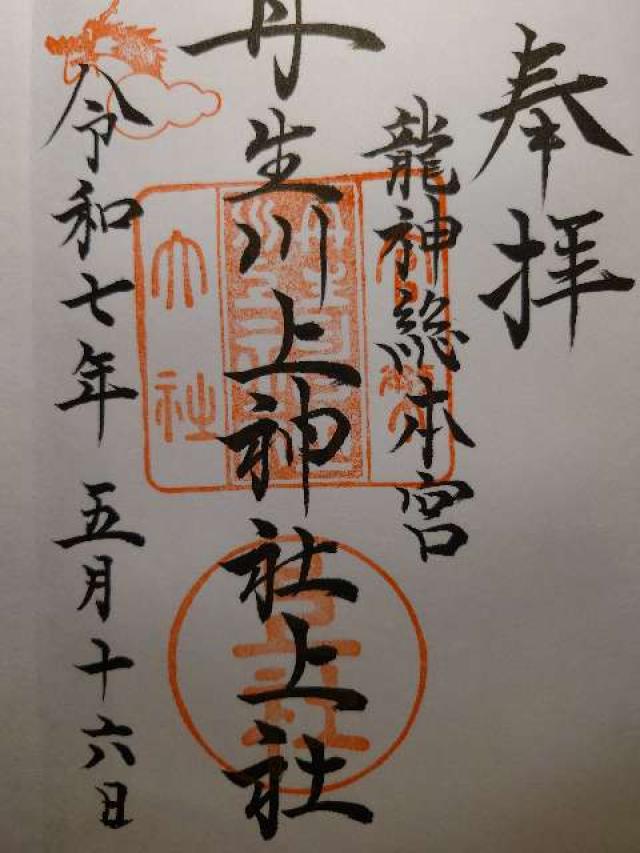 奉拝
龍神総本宮
丹生川上神社上社
令和七年五月十六日
大社
上社